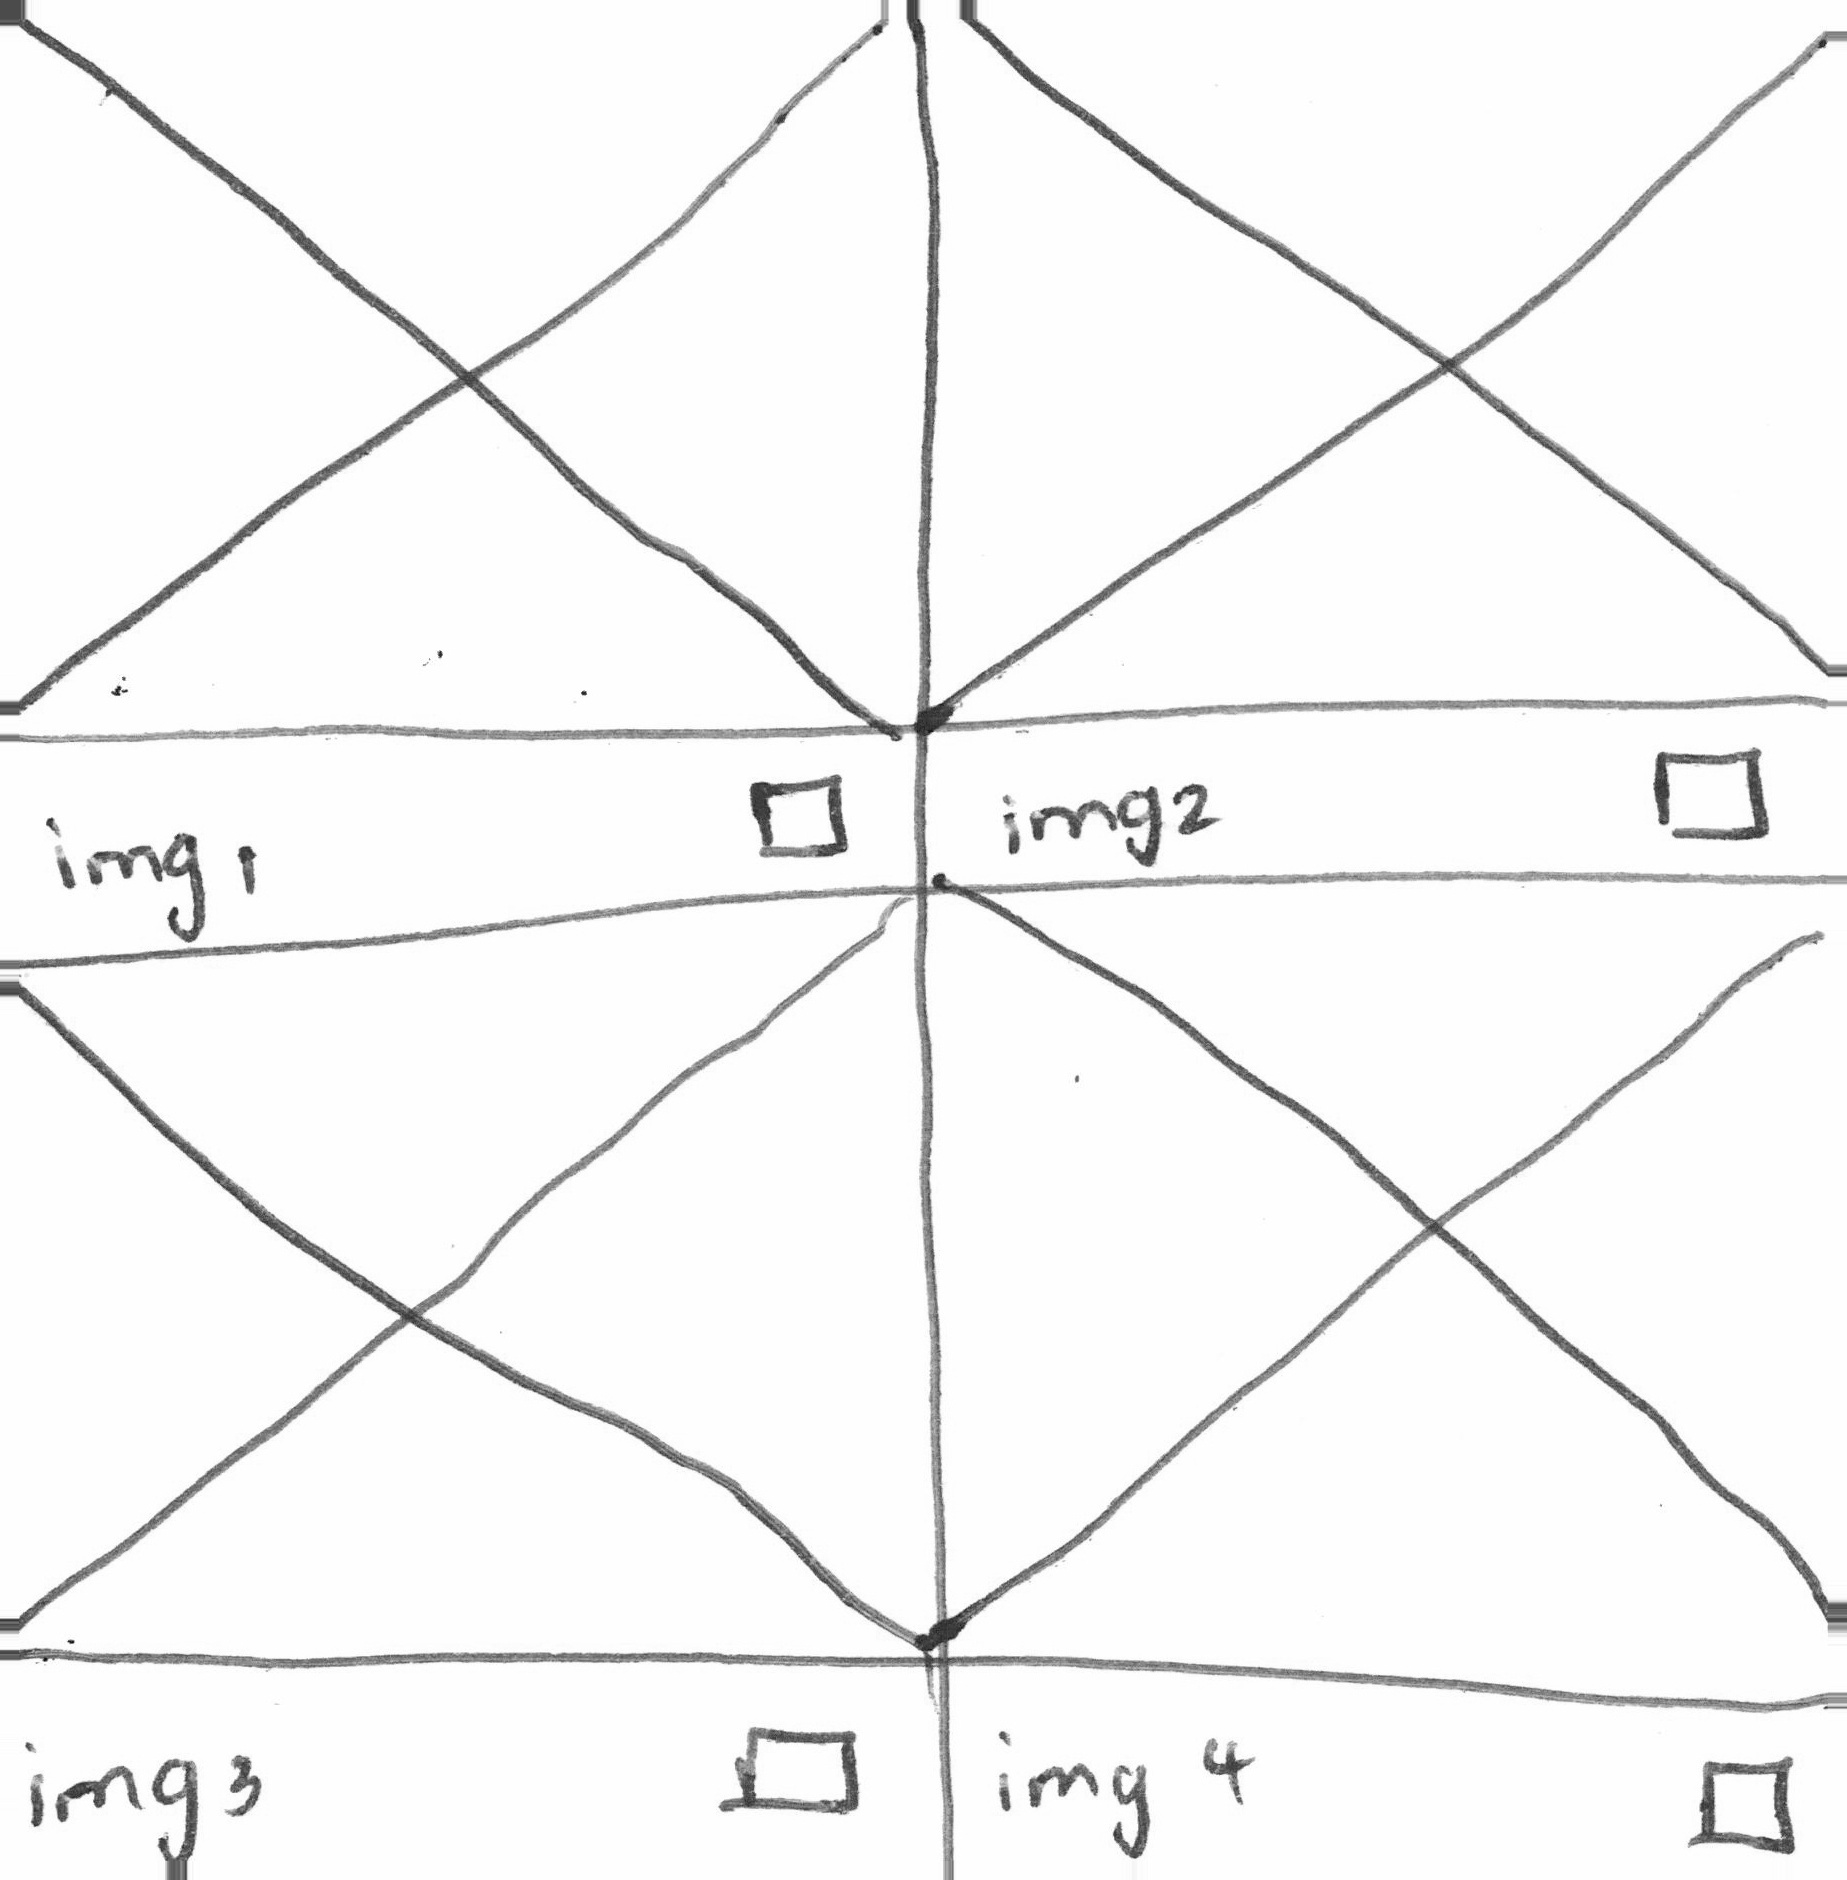 img 1
img2
img3
img 4